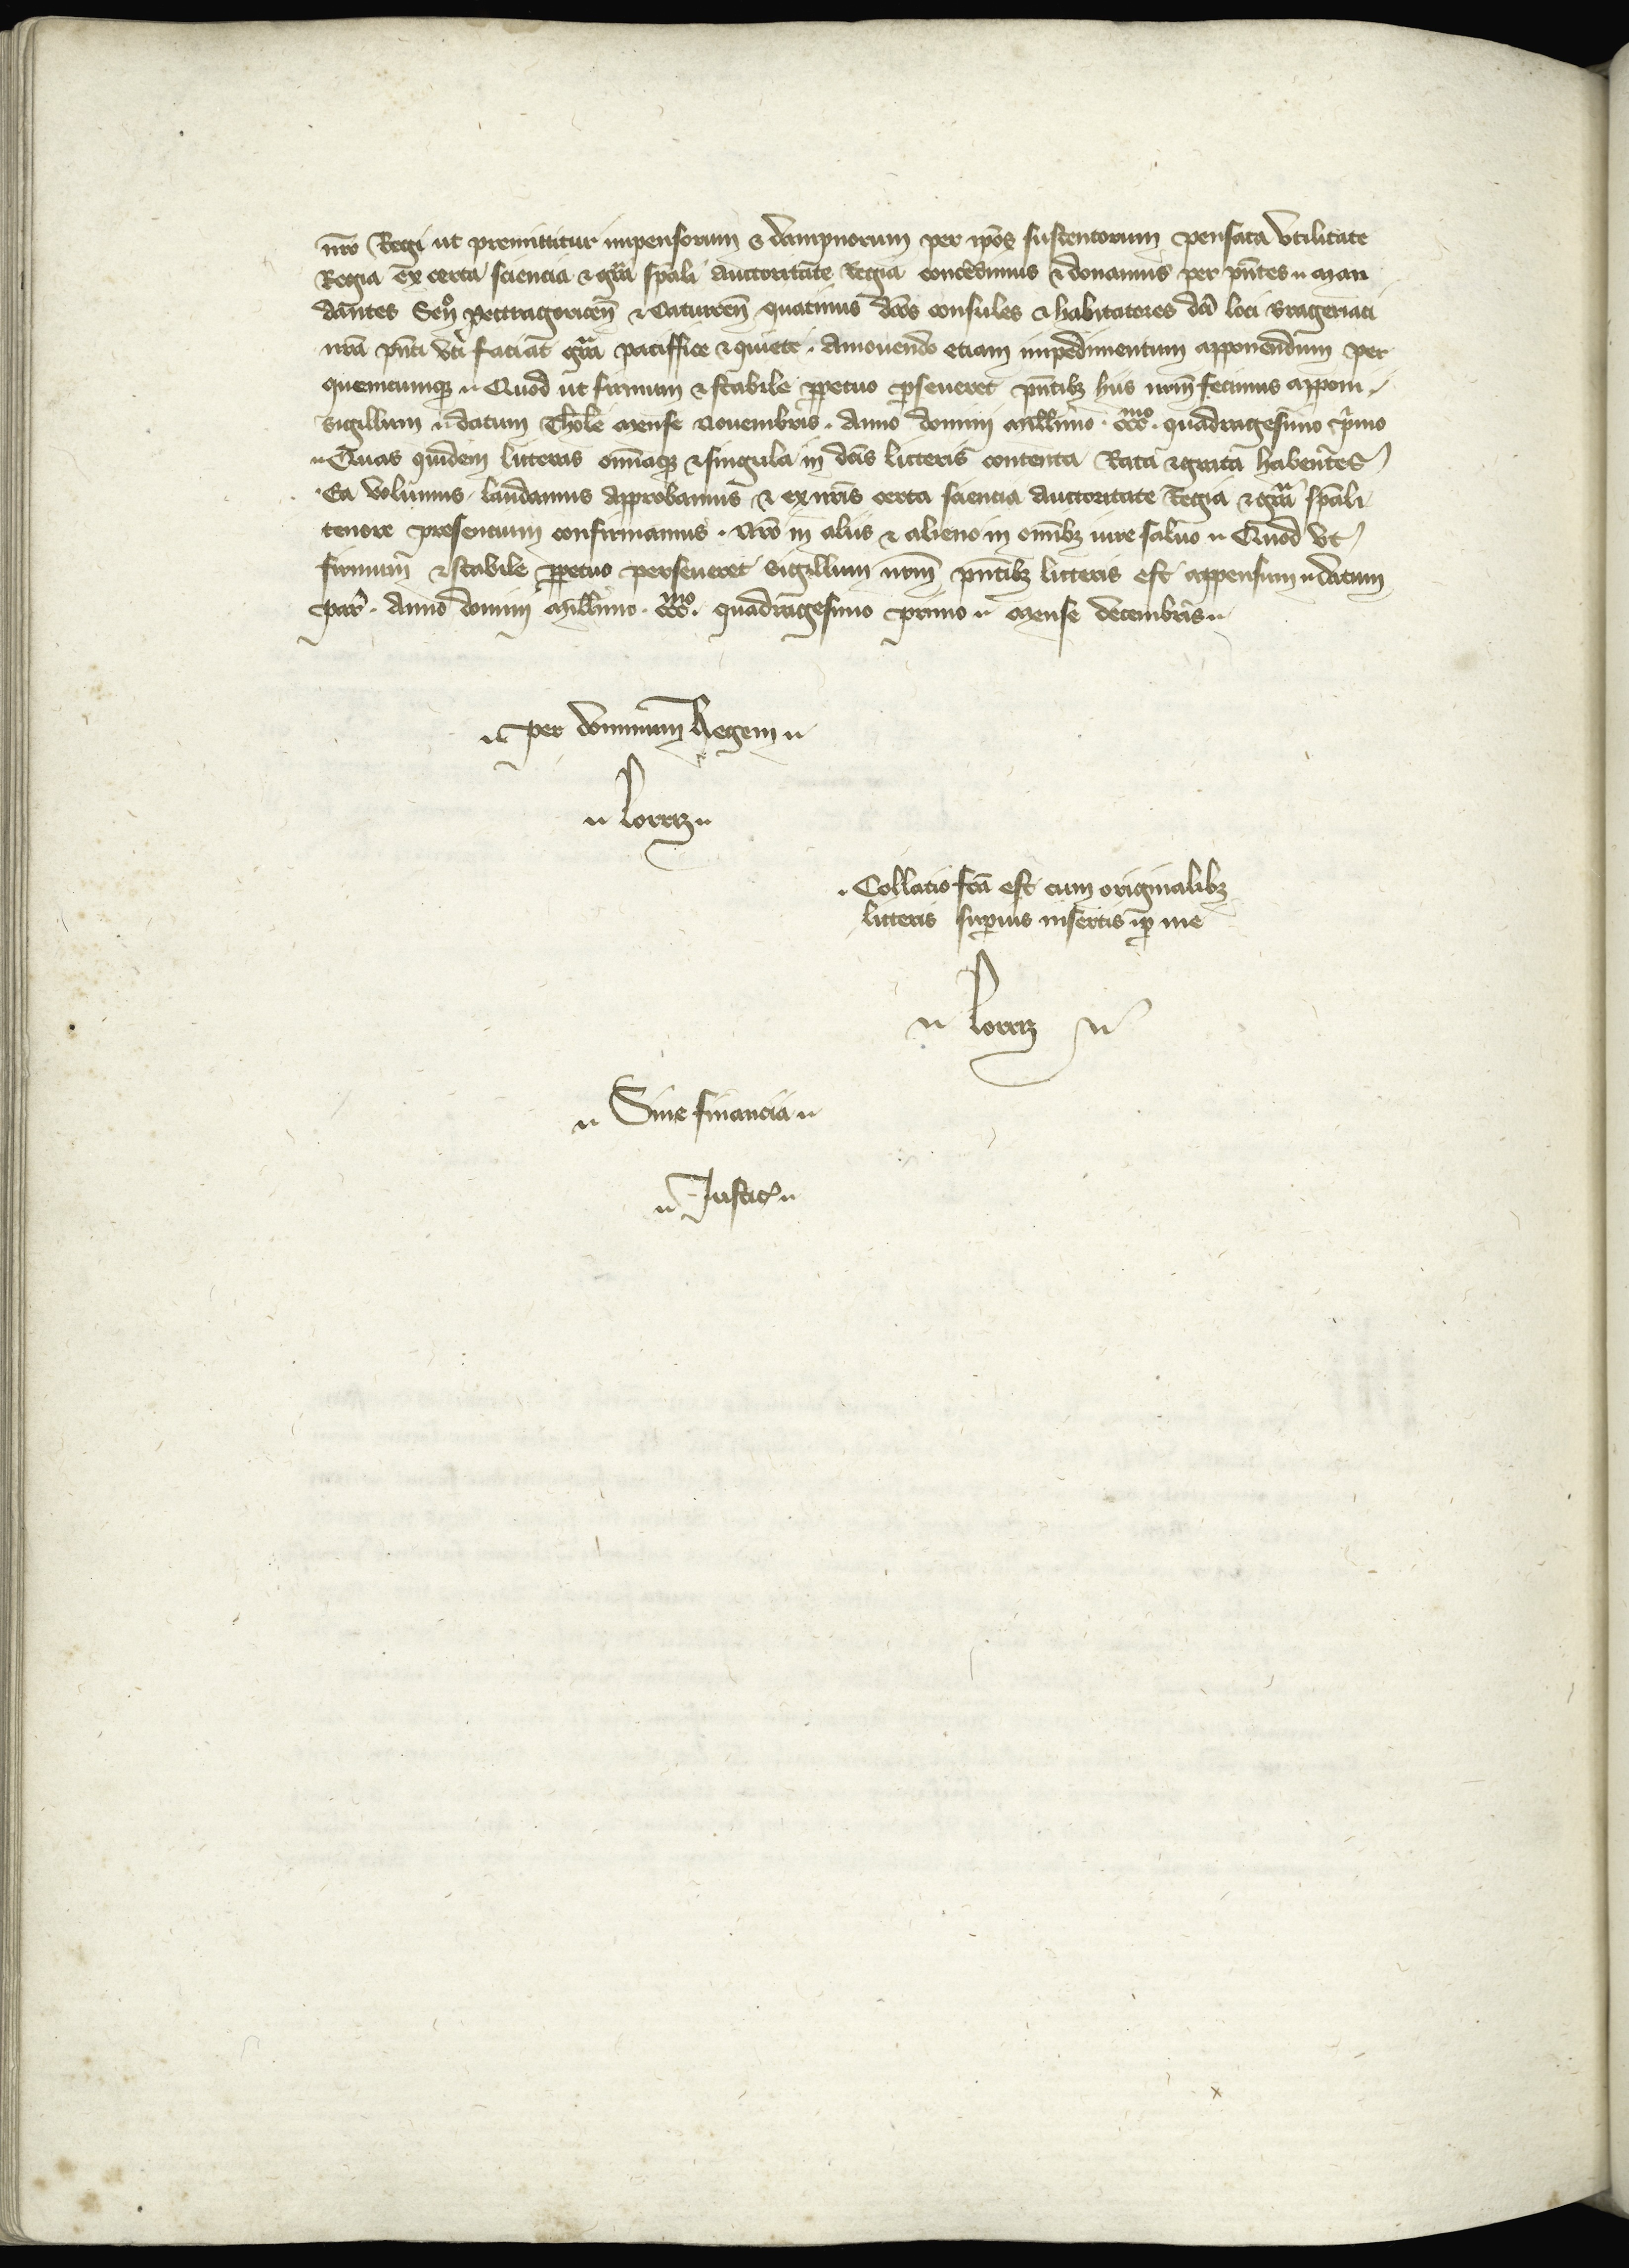 nr̄o Regi ut premittitur impensorum & dampnorum per ip̄os sustentorum pensata vtilitate
Regia ex certa sciencia & gr̄a sp̄ali auctoritate Regia concedimus & donamus per pn̄tes Man
dantes Sen̄ Petragoricen̄ & Caturcen̄ quatinus dc̄os consules & habitatores dc̄i loci Brageriaci
nr̄a pn̄ti vti faciat gr̄a paciffice & quiete. Amouendo etiam impedimentum apponendum per
quemcumqꝫ Quod ut firmum & stabile ꝑpetuo ꝑseueret pn̄tibꝫ hiis nr̄m fecimus apponi
sigillum datum Thol̄e mense Nouembris. Anno domini mill̄imo. ccc.mo quadragesimo primo
Quas quidem litteras omn̄iaqꝫ & singula in dc̄is litteris contenta Rata & grata habentes
Ea volumus laudamus approbamus & ex nr̄is certa sciencia auctoritate Regia & gr̄a sp̄ali
tenore presencium confirmamus. Nr̄o in aliis & alieno in omn̄ibꝫ iure saluo Quod vt
firmum & stabile ꝑpetuo perseueret sigillum nr̄m pn̄tibꝫ litteris est appensum datum
par̄. Anno domini mill̄imo. ccc.mo quadragesimo primo mense decembris
per dominum Regem
Lorriz
Collatio fc̄a est cum originalibꝫ
litteris suꝑius insertis ꝑ me
Lorriz
Sine financia
Justic̄